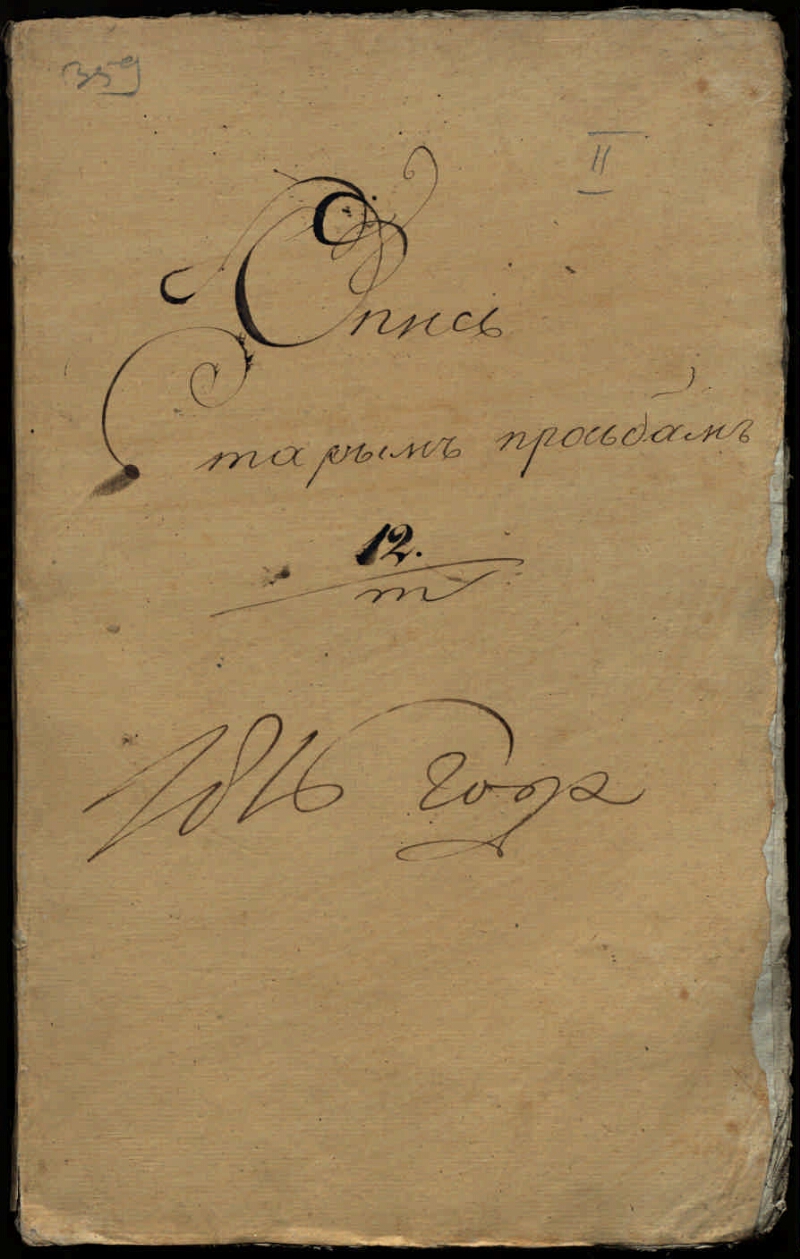 359
II
Опись
старымъ просьбамъ
12.
m
1816 года